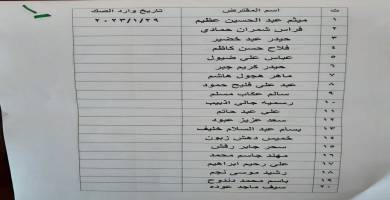 ت اسم المقترض تاريخ وارد الصك
١ ميثم عبد الحسين عظيم ٢٠٢٣/١/٢٩
٢ فراس شمران حمادي
٣ حيدر عبد خضير
٤ فلاح حسن كاظم
٥ عباس علي ضيول
٦ حيدر كريم جبر
٧ ماهر جهول هاشم
٨ عبد علي فليح حمود
٩ سالم عكاب مسلم
١٠ رسميه جالي اذبيب
١١ علي عبد حاتم
١٢ سعد عزيز عبود
١٣ بسام عبد السلام خليف
١٤ خميس دهش زبون
١٥ سحر جابر رفش
١٦ مهند جاسم محمد
١٧ علي رحيم ابراهيم
١٨ رشيد موسى نجم
١٩ باسم محمد دندوح
٢٠ سيف ماجد عوده